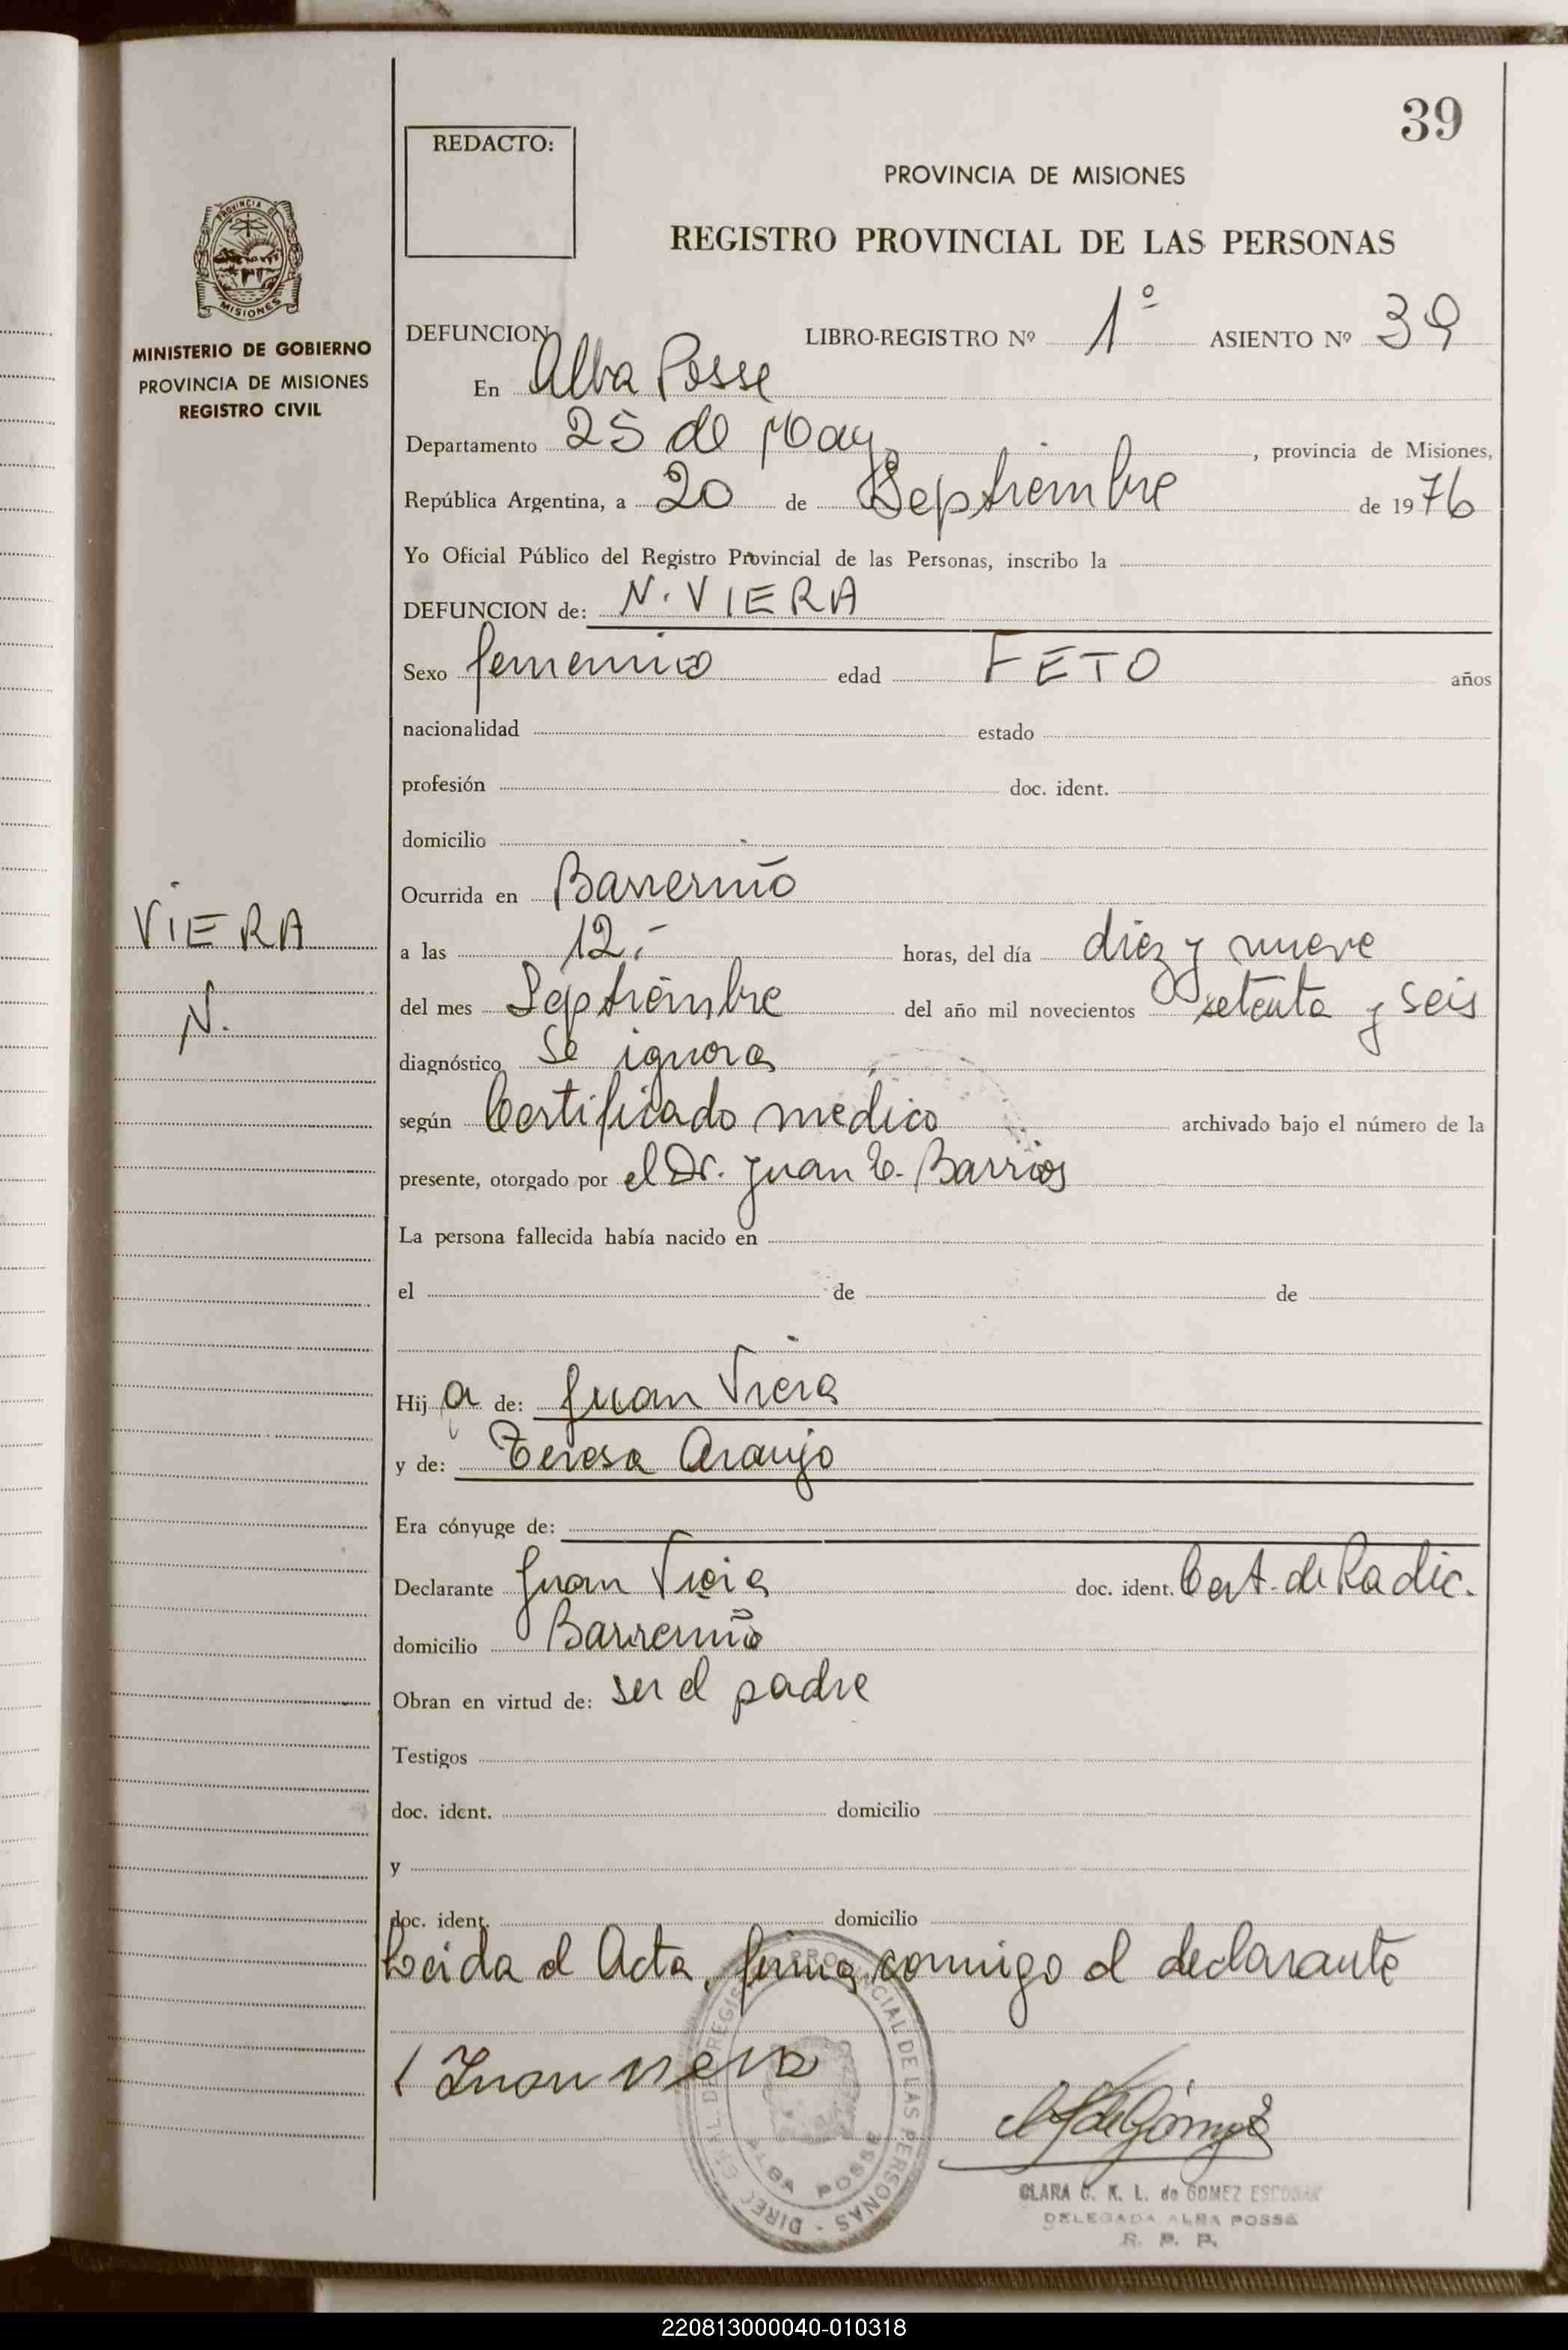 39
REDACTO:
PROVINCIA DE MISIONES
REGISTRO PROVINCIAL DE LAS PERSONAS
PROVINCIA DE
MISIONES
MINISTERIO DE GOBIERNO
PROVINCIA DE MISIONES
REGISTRO CIVIL
DEFUNCION LIBRO-REGISTRO Nº 1º ASIENTO Nº 39
En Alba Posse
Departamento 25 de Mayo, provincia de Misiones,
República Argentina, a 20 de Septiembre de 1976
Yo Oficial Público del Registro Provincial de las Personas, inscribo la
DEFUNCION de: N. VIERA
Sexo femenino edad FETO años
nacionalidad estado
profesión doc. ident.
domicilio
Ocurrida en
VIERA
N.
a las 12,- horas, del día diez y nueve
del mes Septiembre del año mil novecientos setenta y seis
diagnóstico Se ignora
según Certificado médico archivado bajo el número de la
presente, otorgado por el Dr. Juan C. Barrios
La persona fallecida había nacido en
el de de
Hija de: Juan Viera
y de: Teresa Araujo
Era cónyuge de:
Declarante Juan Viera doc. ident. Cert. de Radic.
domicilio
Obran en virtud de: ser el padre
Testigos
doc. ident. domicilio
y
doc. ident. domicilio
Leida el Acta, firma conmigo el declarante
Juan viera
REGISTRO PROVINCIAL DE LAS PERSONAS - DIREC
ALBA POSSE
CLARA C. K. L. de GOMEZ ESCOBAR
DELEGADA ALBA POSSE
R. P. P.
220813000040-010318